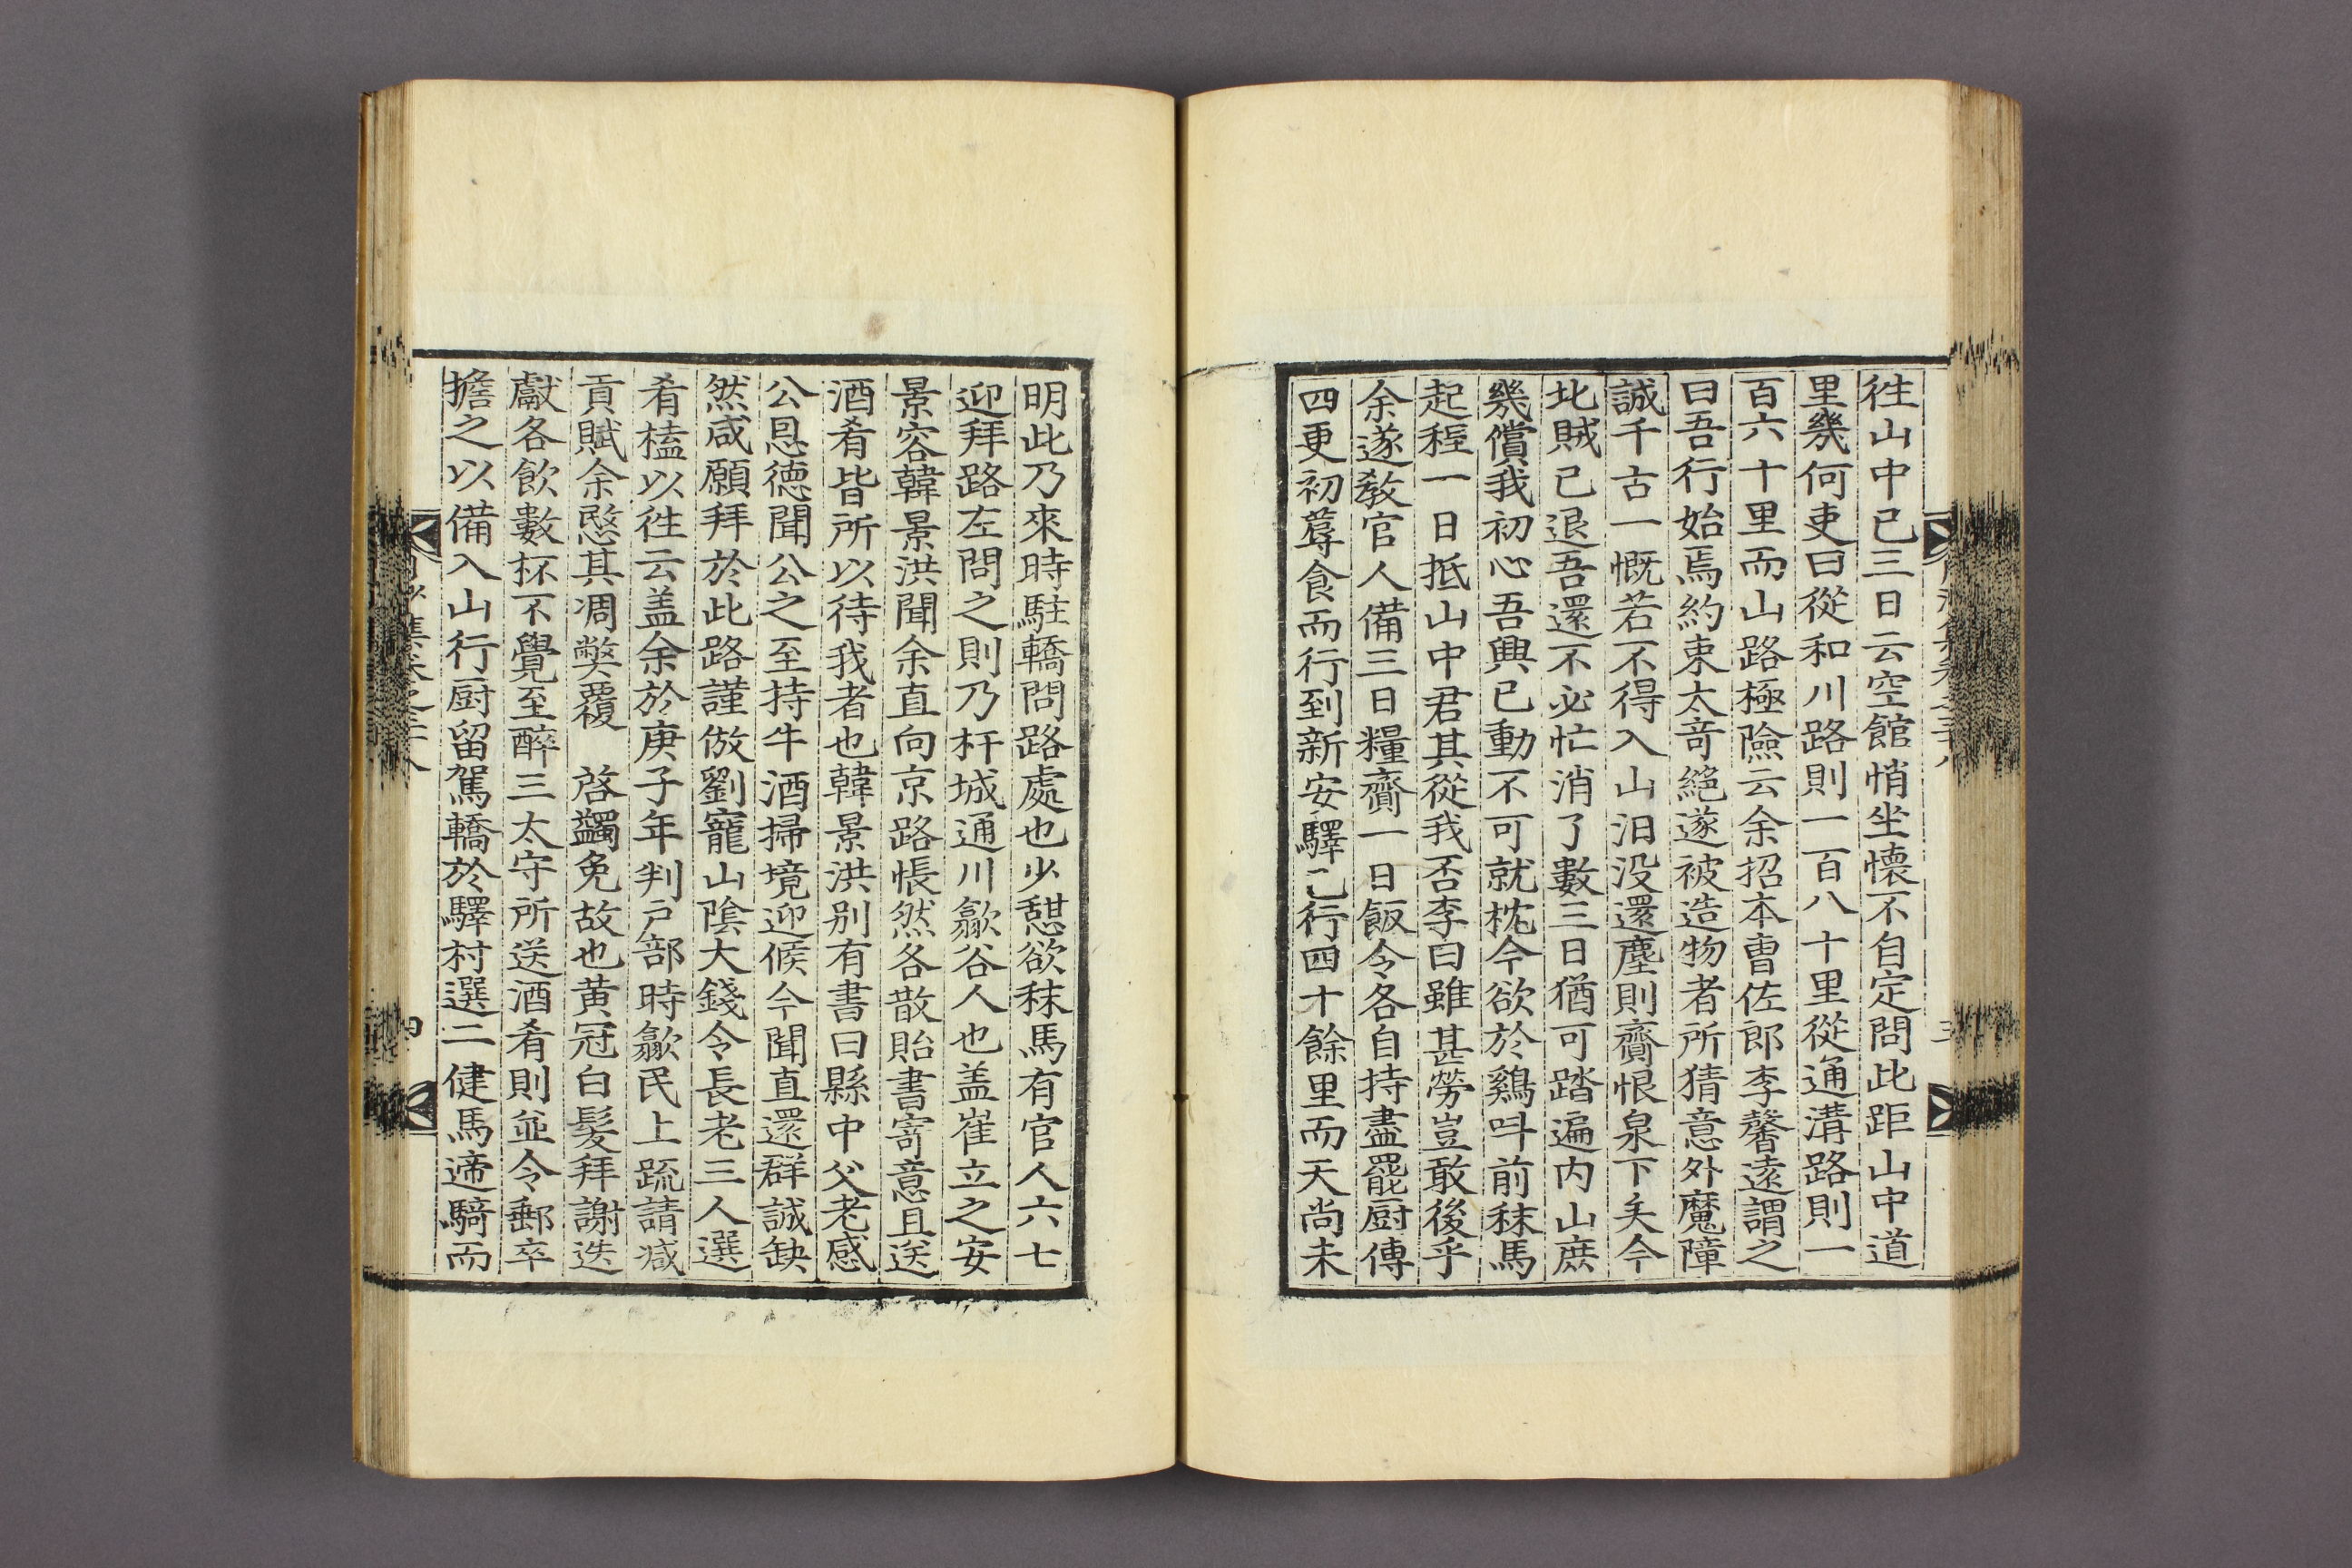 徃山中已三日云空館悄坐懷不自定問此距山中道
里幾何吏曰從和川路則一百八十里從通溝路則一
百六十里而山路極險云余招本曹佐郎李馨遠謂之
曰吾行始焉約束太竒絕遂被造物者所猜意外魔障
誠千古一慨若不得入山汩没還塵則齎恨泉下矣今
北賊已退吾還不必忙消了數三日猶可踏遍内山庶
幾償我初心吾興已動不可就枕今欲於鷄呌前秣馬
起程一日抵山中君其從我否李曰雖甚勞豈敢後乎
余遂教官人備三日糧齎一日飯令各自持盡罷厨傳
四更初蓐食而行到新安驛已行四十餘里而天尚未
明此乃來時駐轎問路處也少憇欲秣馬有官人六七
迎拜路左問之則乃杆城通川歙谷人也盖崔立之安
景容韓景洪聞余直向京路悵然各散貽書寄意且送
酒肴皆所以待我者也韓景洪别有書曰縣中父老感
公恩德聞公之至持牛酒掃境迎候今聞直還群誠缺
然咸願拜於此路謹倣劉寵山陰大錢令長老三人選
肴榼以徃云盖余於庚子年判戶部時歙民上疏請减
貢賦余愍其凋弊覆　啓蠲免故也黄冠白髮拜謝迭
獻各飮數杯不覺至醉三太守所送酒肴則並令郵卒
擔之以備入山行厨留駕轎於驛村選二健馬遆騎而
四